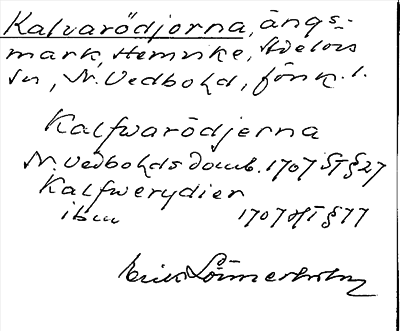 Kalvarödjorna, ängs-
mark, Hemvke, Adelövs
sn, N. Vedbohd, Jönk. l.
Kalfwarödjerna
N. Vedbohds domb. 1707 ST § 27
Kalfwerydier
ibm 1707 HT § 77